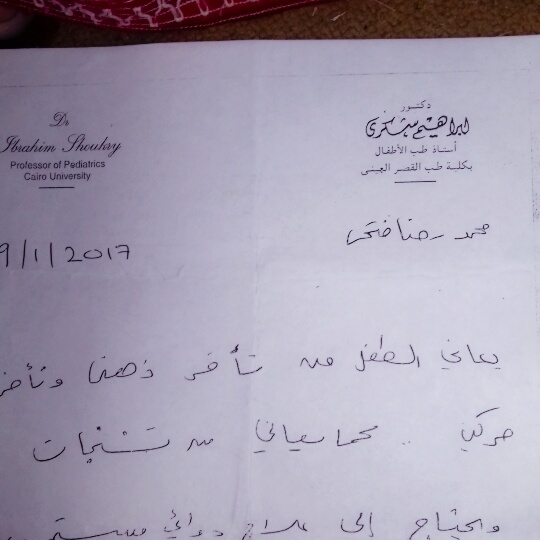 Dr
Ibrahim Shoukry
Professor of Pediatrics
Cairo University
دكتور
ابراهيم شكرى
أستاذ طب الأطفال
بكلية طب القصر العينى
محمد رضا فتحى
9/1/2017
يعانى الطفل من تأخر ذهنى وتأخر
حركى .. كما يعانى من تشنجات
ويحتاج إلى علاج دوائي مستمر